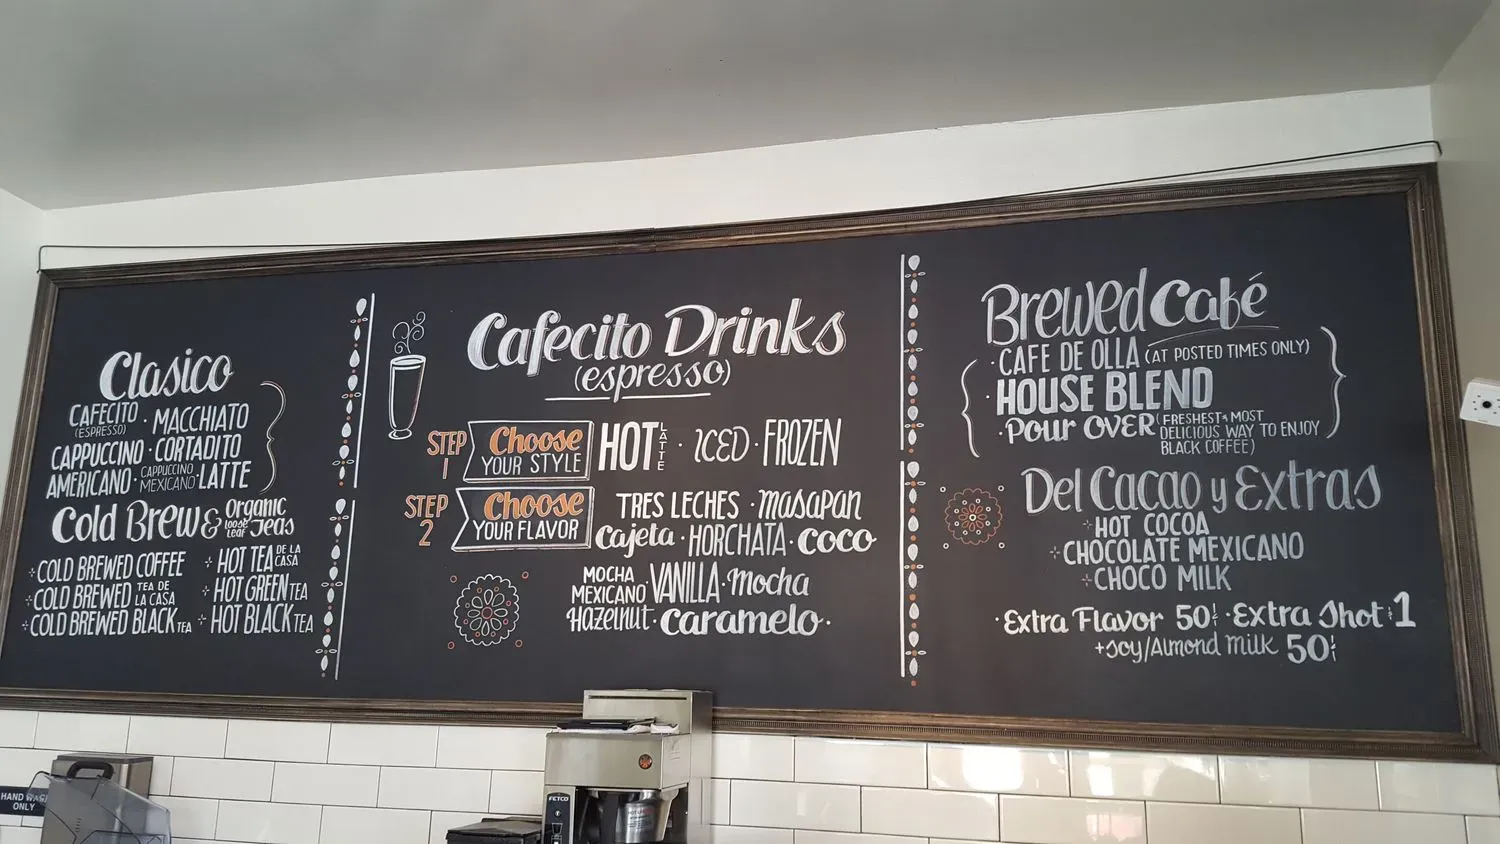 Clasico
CAFECITO (ESPRESSO) · MACCHIATO
CAPPUCCINO · CORTADITO
AMERICANO · CAPPUCCINO MEXICANO · LATTE
Cold Brew & Organic loose leaf Teas
COLD BREWED COFFEE
COLD BREWED TEA DE LA CASA
COLD BREWED BLACK TEA
HOT TEA DE LA CASA
HOT GREEN TEA
HOT BLACK TEA
Cafecito Drinks
(espresso)
STEP 1
Choose
YOUR STYLE
HOT LATTE · ICED · FROZEN
STEP 2
Choose
YOUR FLAVOR
TRES LECHES · masapan
Cajeta · HORCHATA · coco
MOCHA MEXICANO · VANILLA · mocha
Hazelnut · caramelo ·
Brewed Café
· CAFE DE OLLA (AT POSTED TIMES ONLY)
· HOUSE BLEND
· POUR OVER (FRESHEST & MOST
DELICIOUS WAY TO ENJOY
BLACK COFFEE)
Del Cacao y Extras
HOT COCOA
CHOCOLATE MEXICANO
CHOCO MILK
· Extra Flavor 50¢ · Extra Shot $1
+ Soy/Almond milk 50¢
HAND WASH
ONLY
FETCO